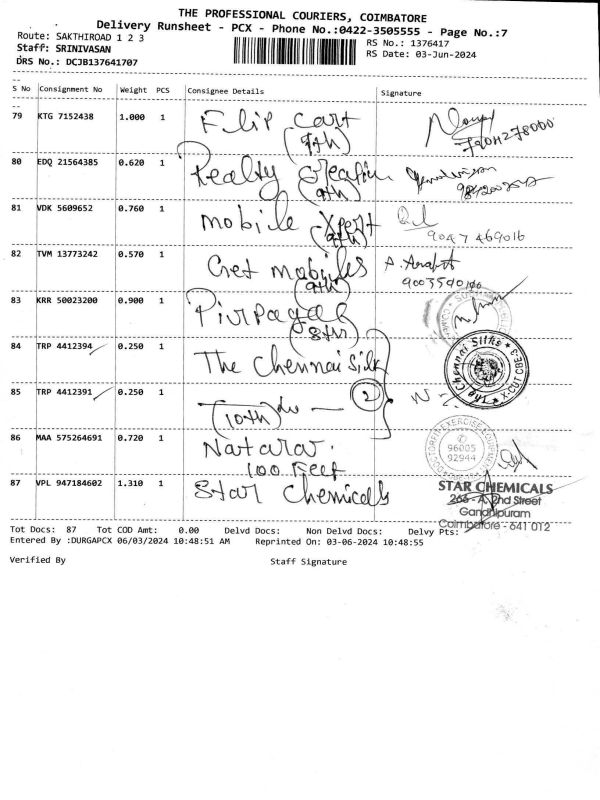 THE PROFESSIONAL COURIERS, COIMBATORE
Delivery Runsheet - PCX - Phone No.:0422-3505555 - Page No.:7
Route: SAKTHIROAD 1 2 3
RS No.: 1376417
Staff: SRINIVASAN
RS Date: 03-Jun-2024
DRS No.: DCJB137641707
S No Consignment No Weight PCS Consignee Details Signature
79 KTG 7152438 1.000 1 Flip Cart
(9th)
80 EDQ 21564385 0.620 1 Realty
(9th)
81 VDK 5609652 0.760 1 mobile Xpert
(9th) 9047469016
82 TVM 13773242 0.570 1 Get mobiles A.
(9th)
83 KRR 50023200 0.900 1
(8th)
84 TRP 4412394 0.250 1 The Chennai Silk
The Chennai Silks
X-CUT CBE-3
85 TRP 4412391 0.250 1 — do — 2
(10th)
86 MAA 575264691 0.720 1
100 Feet
96005
92944
87 VPL 947184602 1.310 1 Star Chemicals
STAR CHEMICALS
266 - A, 2nd Street
Gandhipuram
Coimbatore - 641 012
Tot Docs: 87 Tot COD Amt: 0.00 Delvd Docs: Non Delvd Docs: Delvy Pts:
Entered By :DURGAPCX 06/03/2024 10:48:51 AM Reprinted On: 03-06-2024 10:48:55
Verified By Staff Signature